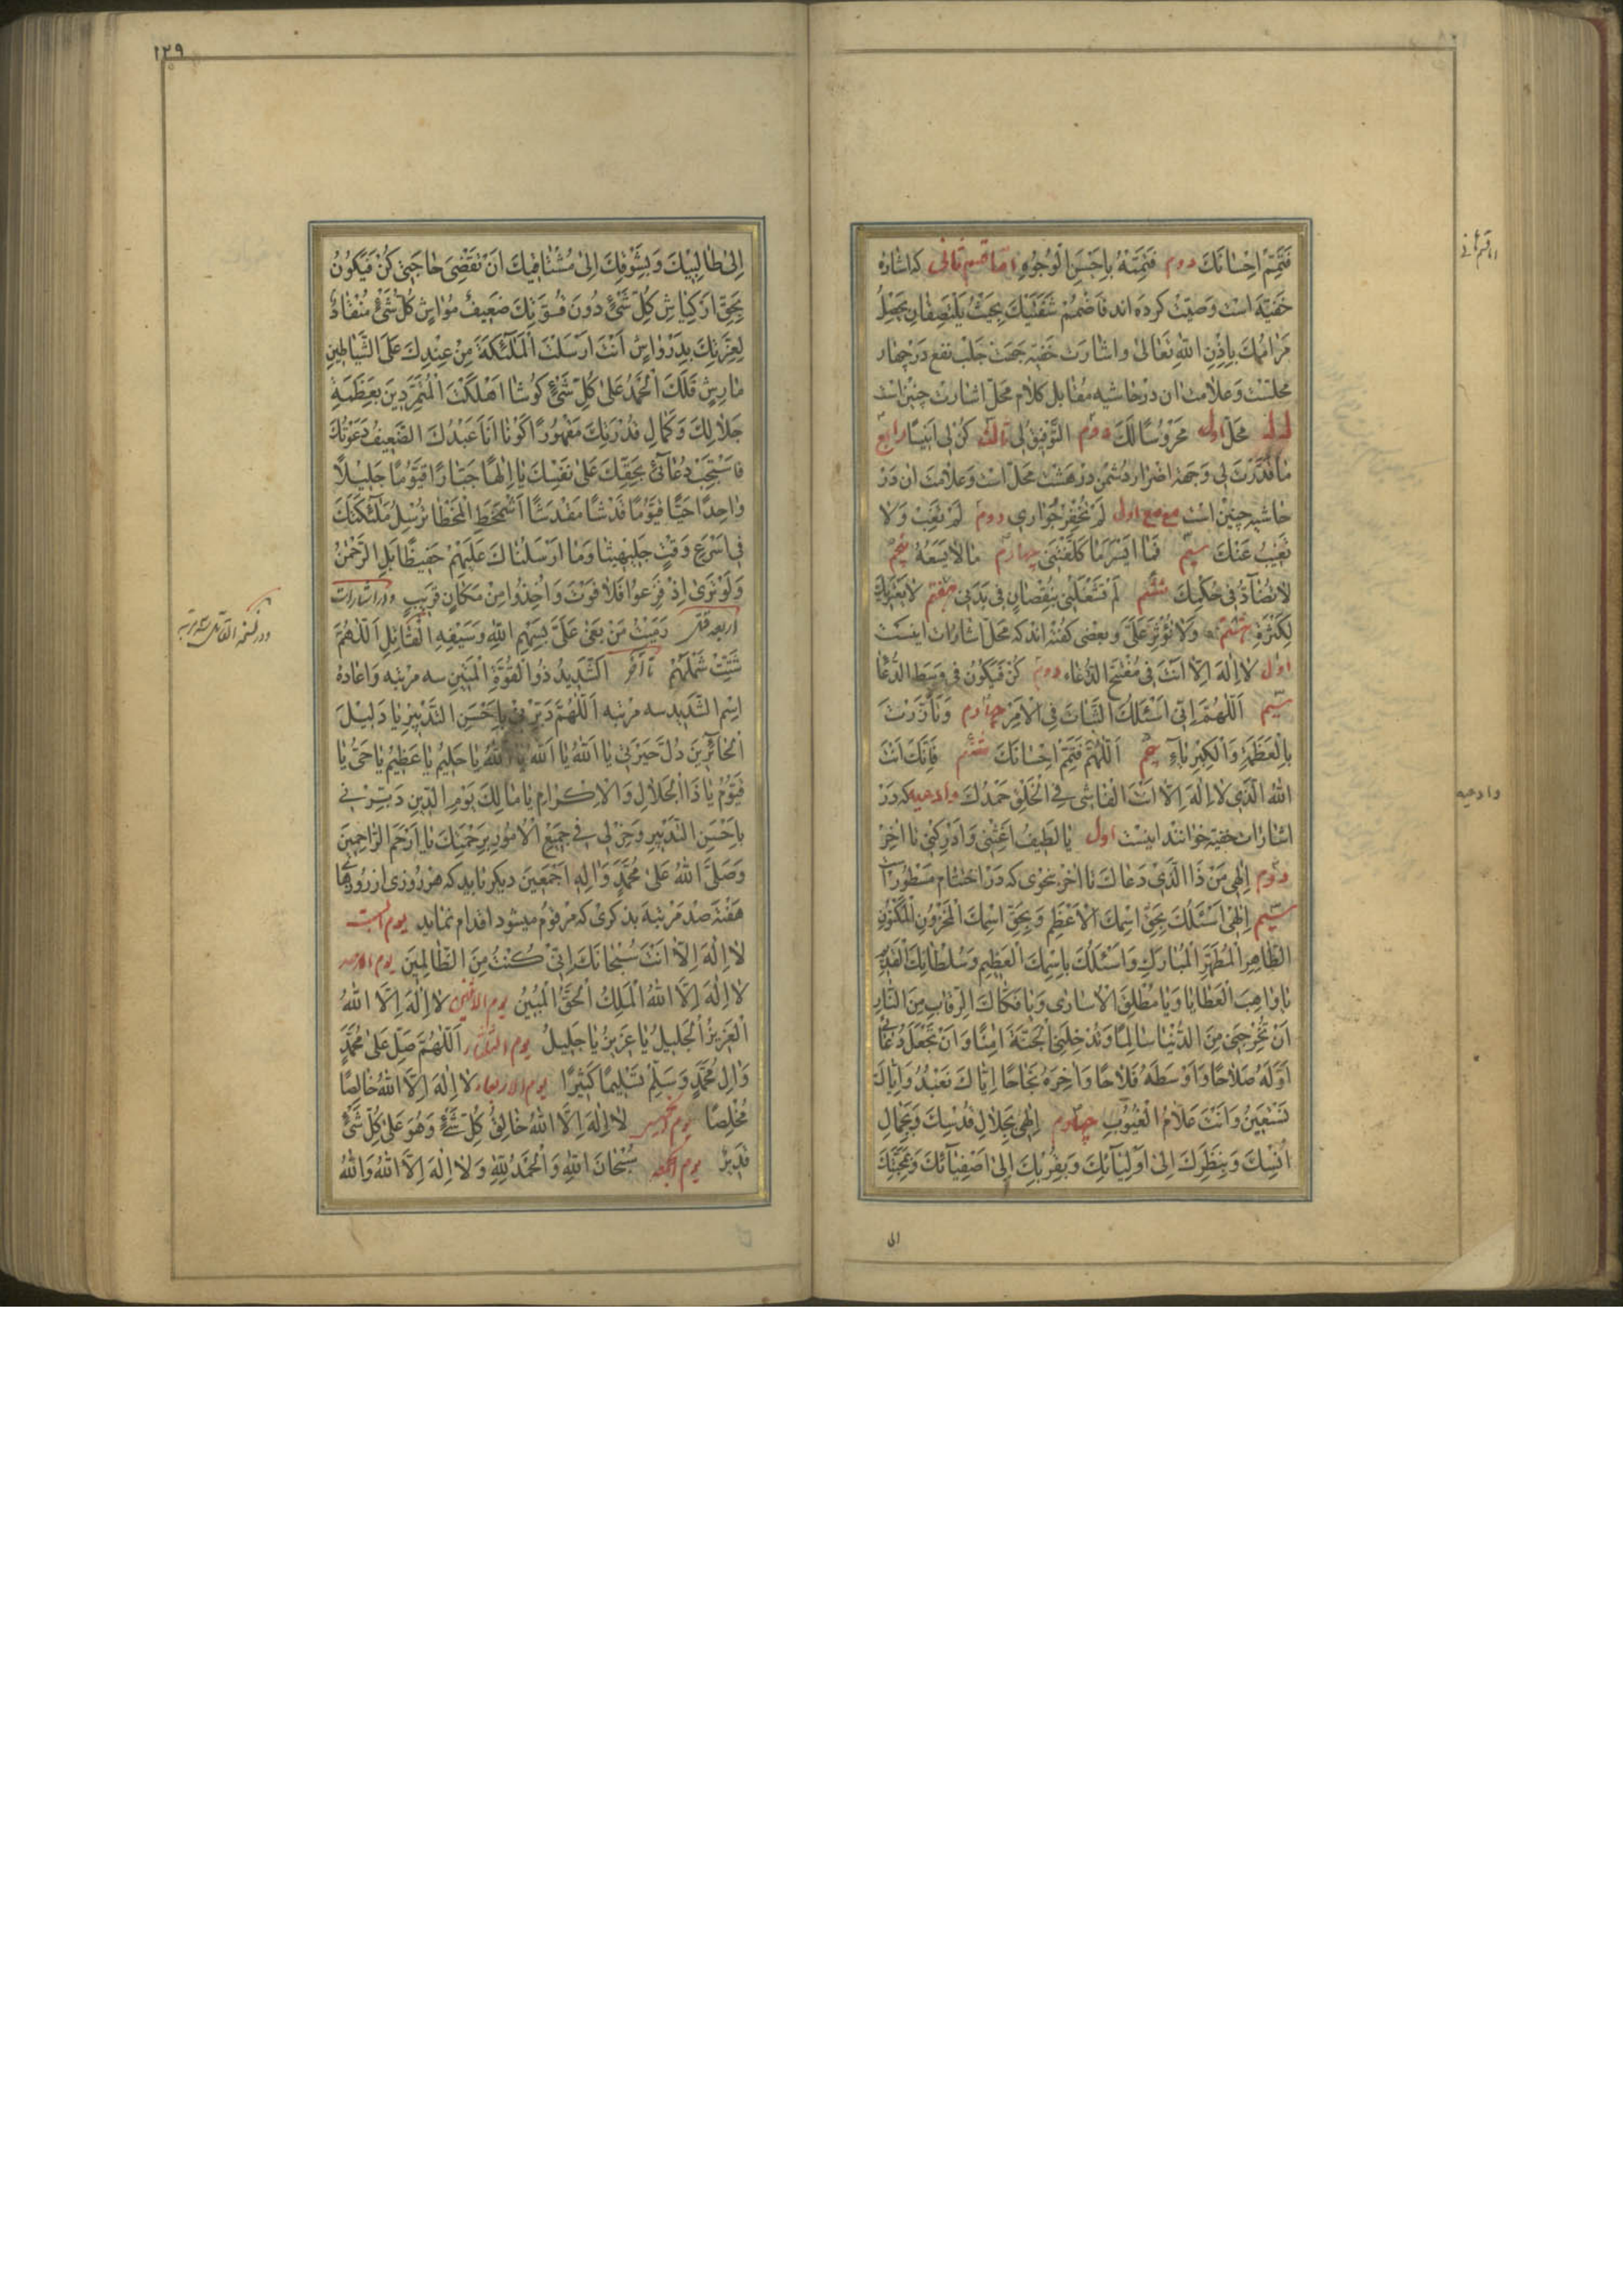 فَتَمِّمْ اِحْسَانَكَ دوم فَتَمِّمْهُ بِاَحْسَنِ الْوُجُوهِ اما قسم ثانی که اشاره
خفیّه است وصیّت کرده اند فاضمم شفتیک بحیث یلتصقان یحصل
مرامک باذن الله تعالی و اشارت خفیّه جهت جلب نفع در چهار
محلّست و علامت ان در حاشیه مقابل کلام محلّ اشارت چنین است
محلّ اول مَحْرُوسًا لَكَ دوم التَّوْفِیقُ لِی ثالث كُنْ لِی اَنِیسًا رابع
مَا قَدَّرْتَ لِی و جهت اضرار دشمن در هشت محلّ است و علامت ان در
حاشیه چنین است مع مع اول لَمْ تُخْفَرْ جِوَارِی دوم لَمْ تَغِبْ وَلَا
تَغِیبُ عَنْكَ سیّم فَمَا اَیْسَرَ مَا كَلَّفْتَنِی چهارم مَا لَا یَسَعُهُ پنجم
لَا تُضَادُّ فِی حُكْمِكَ ششم لَمْ تَشْغَلْنِی بِنُقْصَانٍ فِی بَدَنِی هفتم
لِكَثْرَةِ هشتم وَلَا تُؤْثِرْ عَلَیَّ و بعضی کفته اند که محلّ اشارات اینست
اول لَا اِلٰهَ اِلَّا اَنْتَ فی مفتتح الدّعاء دوم كُنْ فَیَكُونُ فی وسط الدّعا
سیّم اَللّٰهُمَّ اِنِّی اَسْئَلُكَ الثَّبَاتَ فِی الْاَمْرِ چهارم وَتَاَزَّرْتَ
بِالْعَظَمَةِ وَالْكِبْرِیَاءِ پنجم اَللّٰهُمَّ فَتَمِّمْ اِحْسَانَكَ ششم فَاِنَّكَ اَنْتَ
اللّٰهُ الَّذِی لَا اِلٰهَ اِلَّا اَنْتَ الْفَاشِی فِی الْخَلْقِ حَمْدُكَ و ادعیه که در
اشارات خفیّه خوانند اینست اول یَا لَطِیفُ اَغِثْنِی وَاَدْرِكْنِی تا اخر
دوم اِلٰهِی مَنْ ذَا الَّذِی دَعَاكَ تا اخر بنحوی که در اختتام مسطور است
سیّم اِلٰهِی اَسْئَلُكَ بِحَقِّ اسْمِكَ الْاَعْظَمِ وَبِحَقِّ اسْمِكَ الْمَخْزُونِ الْمَكْنُونِ
الطَّاهِرِ الْمُطَهَّرِ الْمُبَارَكِ وَاَسْئَلُكَ بِاِسْمِكَ الْعَظِیمِ وَسُلْطَانِكَ الْقَدِیمِ
یَا وَاهِبَ الْعَطَایَا وَیَا مُطْلِقَ الْاُسَارٰی وَیَا فَكَّاكَ الرِّقَابِ مِنَ النَّارِ
اَنْ تُخْرِجَنِی مِنَ الدُّنْیَا سَالِمًا وَتُدْخِلَنِی الْجَنَّةَ اٰمِنًا وَاَنْ تَجْعَلَ دُعَائِی
اَوَّلَهُ صَلَاحًا وَاَوْسَطَهُ فَلَاحًا وَاٰخِرَهُ نَجَاحًا اِیَّاكَ نَعْبُدُ وَاِیَّاكَ
نَسْتَعِینُ وَاَنْتَ عَلَّامُ الْغُیُوبِ چهارم اِلٰهِی بِجَلَالِ قُدْسِكَ وَبِجَمَالِ
اُنْسِكَ وَبِنَظَرِكَ اِلٰی اَوْلِیَائِكَ وَبِقُرْبِكَ اِلٰی اَصْفِیَائِكَ وَبِمَحَبَّتِكَ
الی
اما قسم ثانی
و ادعیه
۱۲۹
اِلٰی طَالِبِیكَ وَبِشَوْقِكَ اِلٰی مُشْتَاقِیكَ اَنْ تَقْضِیَ حَاجَتِی كُنْ فَیَكُونُ
بِحَقِّ اَرْكِیَاشٍ كُلُّ شَیْءٍ دُونَ قُوَّتِكَ ضَعِیفٌ مُوَاشٍ كُلُّ شَیْءٍ مُنْقَادٌ
لِعِزَّتِكَ بِدَرْوَاسٍ اَنْتَ اَرْسَلْتَ الْمَلٰئِكَةَ مِنْ عِنْدِكَ عَلَی الشَّیَاطِینِ
مَارِشٍ فَلَكَ الْحَمْدُ عَلٰی كُلِّ شَیْءٍ كَوْشَا اَهْلَكْتَ الْمُتَمَرِّدِینَ بِعَظَمَةِ
جَلَالِكَ وَكَمَالِ قُدْرَتِكَ مَقْهُورًا اَكُونَا اَنَا عَبْدُكَ الضَّعِیفُ دَعَوْتُكَ
فَاسْتَجِبْ دُعَائِی بِحَقِّكَ عَلٰی نَفْسِكَ یَا اِلٰهًا جَبَّارًا قَیُّومًا جَلِیلًا
وَاحِدًا حَیًّا قَیُّومًا قُدْسًا مُقَدَّسًا تُرْسِلُ مَلٰئِكَتَكَ
فِی اَسْرَعِ وَقْتٍ وَمَا اَرْسَلْنَاكَ عَلَیْهِمْ حَفِیظًا بَلِ الرَّحْمٰنُ
وَلَوْ تَرٰی اِذْ فَزِعُوا فَلَا فَوْتَ وَاُخِذُوا مِنْ مَكَانٍ قَرِیبٍ و در اشارات
اربعه رَمَیْتُ مَنْ بَغٰی عَلَیَّ بِسَهْمِ اللّٰهِ وَسَیْفِهِ الْقَاتِلِ اَللّٰهُمَّ
شَتِّتْ شَمْلَهُمْ تا اخر اَلشَّدِیدُ ذُو الْقُوَّةِ الْمَتِینِ سه مرتبه و اعاده
اسم الشّدید سه مرتبه اَللّٰهُمَّ دَبِّرْنِی بِاَحْسَنِ التَّدْبِیرِ یَا دَلِیلَ
الْحَائِرِینَ دُلَّ حَیْرَتِی یَا اَللّٰهُ یَا اَللّٰهُ یَا اَللّٰهُ یَا حَلِیمُ یَا عَظِیمُ یَا حَیُّ یَا
قَیُّومُ یَا ذَا الْجَلَالِ وَالْاِكْرَامِ یَا مَالِكَ یَوْمِ الدِّینِ دَبِّرْنِی
بِاَحْسَنِ التَّدْبِیرِ وَخِرْ لِی فِی جَمِیعِ الْاُمُورِ بِرَحْمَتِكَ یَا اَرْحَمَ الرَّاحِمِینَ
وَصَلَّی اللّٰهُ عَلٰی مُحَمَّدٍ وَاٰلِهِ اَجْمَعِینَ دیکر باید که هر روزی از روزهای
هفته صد مرتبه بذکری که مرقوم میشود اقدام نماید یوم السبت
لَا اِلٰهَ اِلَّا اَنْتَ سُبْحَانَكَ اِنِّی كُنْتُ مِنَ الظَّالِمِینَ یوم الاحد
لَا اِلٰهَ اِلَّا اللّٰهُ الْمَلِكُ الْحَقُّ الْمُبِینُ یوم الاثنین لَا اِلٰهَ اِلَّا اللّٰهُ
الْعَزِیزُ الْجَلِیلُ یَا عَزِیزُ یَا جَلِیلُ یوم الثلثا اَللّٰهُمَّ صَلِّ عَلٰی مُحَمَّدٍ
وَاٰلِ مُحَمَّدٍ وَسَلِّمْ تَسْلِیمًا كَثِیرًا یوم الاربعاء لَا اِلٰهَ اِلَّا اللّٰهُ خَالِصًا
مُخْلِصًا یوم الخمیس لَا اِلٰهَ اِلَّا اللّٰهُ خَالِقُ كُلِّ شَیْءٍ وَهُوَ عَلٰی كُلِّ شَیْءٍ
قَدِیرٌ یوم الجمعه سُبْحَانَ اللّٰهِ وَالْحَمْدُ لِلّٰهِ وَلَا اِلٰهَ اِلَّا اللّٰهُ وَاللّٰهُ